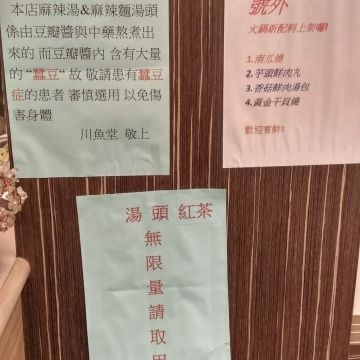 本店麻辣湯&麻辣麵湯頭
係由豆瓣醬與中藥熬煮出
來的 而豆瓣醬內 含有大量
的 "蠶豆" 故 敬請患有蠶豆
症的患者 審慎選用 以免傷
害身體
川魚堂 敬上
號外
火鍋新配料上架囉!
1.南瓜燒
2.芋頭鮮肉丸
3.香菇鮮肉湯包
4.黃金干貝燒
歡迎嘗鮮!
湯頭紅茶
無限量請取用